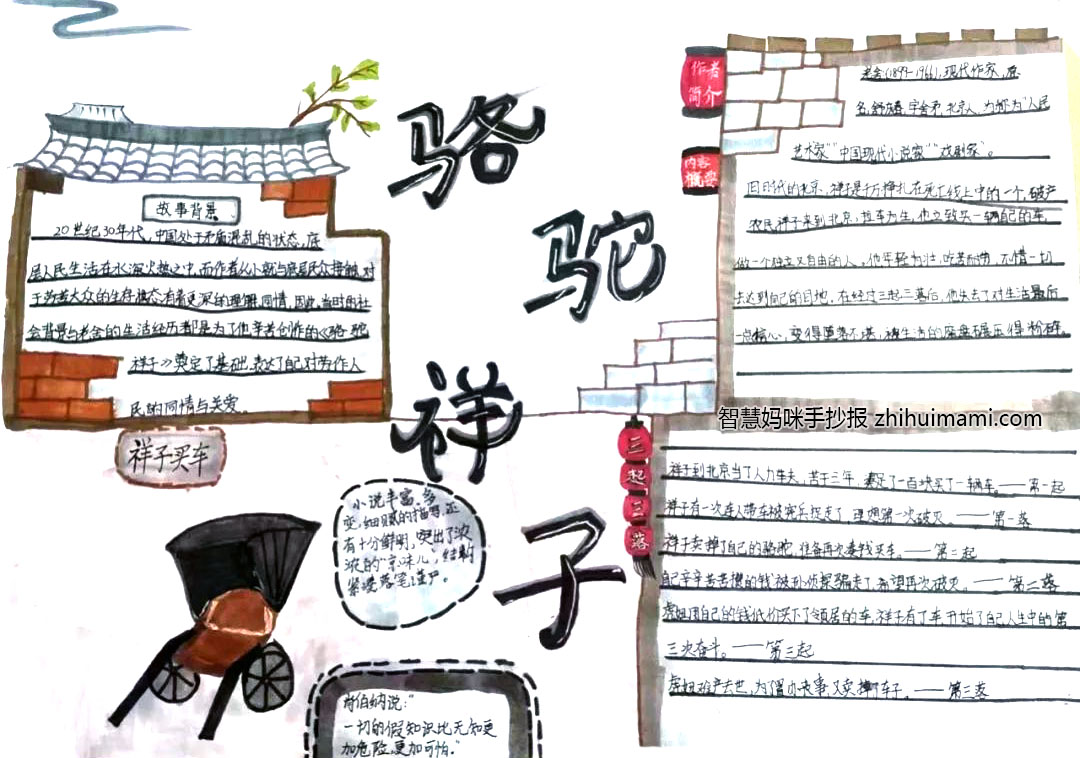 骆
驼
祥
子
故事背景
20世纪30年代，中国处于矛盾混乱的状态，底
层人民生活在水深火热之中，而作者从小就与底层民众接触，对
于劳苦大众的生存状态有着更深的理解、同情，因此，当时的社
会背景与老舍的生活经历都是为了他辛苦创作的《骆驼
祥子》奠定了基础，表达了自己对劳作人
民的同情与关爱。
祥子买车
小说丰富、多
变，细腻的描写，还
有十分鲜明，突出了浓
浓的"京味儿"，结构
紧凑，落笔谨严。
肖伯纳说："
一切的假知识比无知更
加危险，更加可怕。"
作者
简介
老舍(1899-1966)，现代作家，原
名舒庆春，字舍予，北京人，为"人民
艺术家""中国现代小说家""戏剧家"。
内容
概要
旧时代的北京，祥子是千万挣扎在死亡线上中的一个，破产
农民祥子来到北京，拉车为生，他立致买一辆自己的车，
做一个独立又自由的人，他年轻力壮，吃苦耐劳，不惜一切
去达到自己的目地，在经过三起三落后，他失去了对生活最后
一点核心，变得堕落不堪，被生活的磨盘碾压得粉碎。
智慧妈咪手抄报 zhihuimami.com
三
起
三
落
祥子到北京当了人力车夫，苦干三年，凑足了一百块买了一辆车。——第一起
祥子有一次连人带车被宪兵捉走了，理想第一次破灭。——第一落
祥子卖掉了自己的骆驼，准备再次凑钱买车。——第二起
自己辛辛苦苦攒的钱被孙侦探骗走了，希望再次破灭。——第二落
虎妞用自己的钱低价买下了领居的车，祥子有了车开始了自己人生中的第
三次奋斗。——第三起
虎妞难产去世，为了置办丧事，又卖掉了车子。——第三落